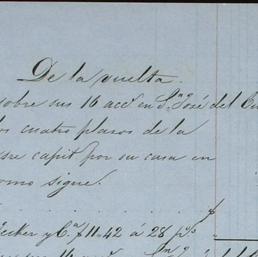 De la vuelta.
sobre sus 16 acc.s en S.n José del
los cuatro plazos de la
capit por su casa en
como sigue.
y C.a 11.42 á 28 p.s